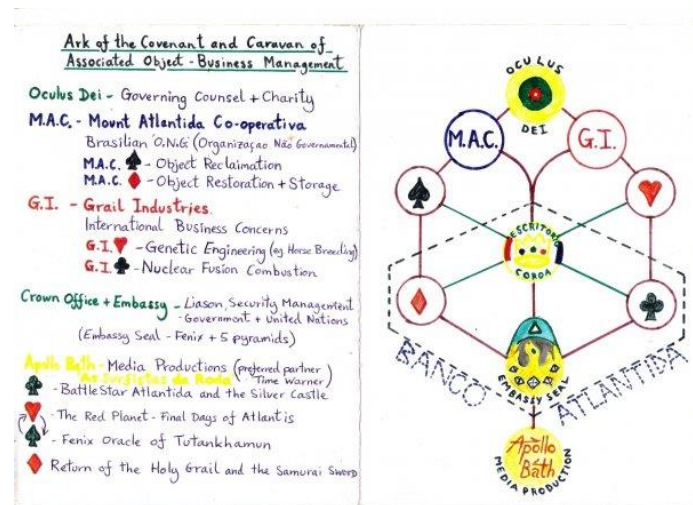 Ark of the Covenant and Caravan of
Associated Object - Business Management
Oculus Dei - Governing Counsel + Charity
M.A.C. - Mount Atlantida Co-operativa
Brasilian O.N.G (Organizaçao Não Governamental)
M.A.C. ♠ - Object Reclamation
M.A.C. ♦ - Object Restoration + Storage
G.I. - Grail Industries
International Business Concerns
G.I. ♥ - Genetic Engineering (eg Horse Breeding)
G.I. ♣ - Nuclear Fusion Combustion
Crown Office + Embassy - Liason, Security Management
- Government + United Nations
(Embassy Seal - Fenix + 5 pyramids)
Apollo Bath - Media Productions (preferred partner
As Surfistas da Roda Time Warner)
♣ - BattleStar Atlantida and the Silver Castle
♥ - The Red Planet - Final Days of Atlantis
♠ - Fenix Oracle of Tutankhamun
♦ Return of the Holy Grail and the Samurai Sword
OCULUS
DEI
M.A.C.
G.I.
ESCRITORIO
COROA
BANCO ATLANTIDA
EMBASSY SEAL
Apollo
Bath
MEDIA PRODUCTION